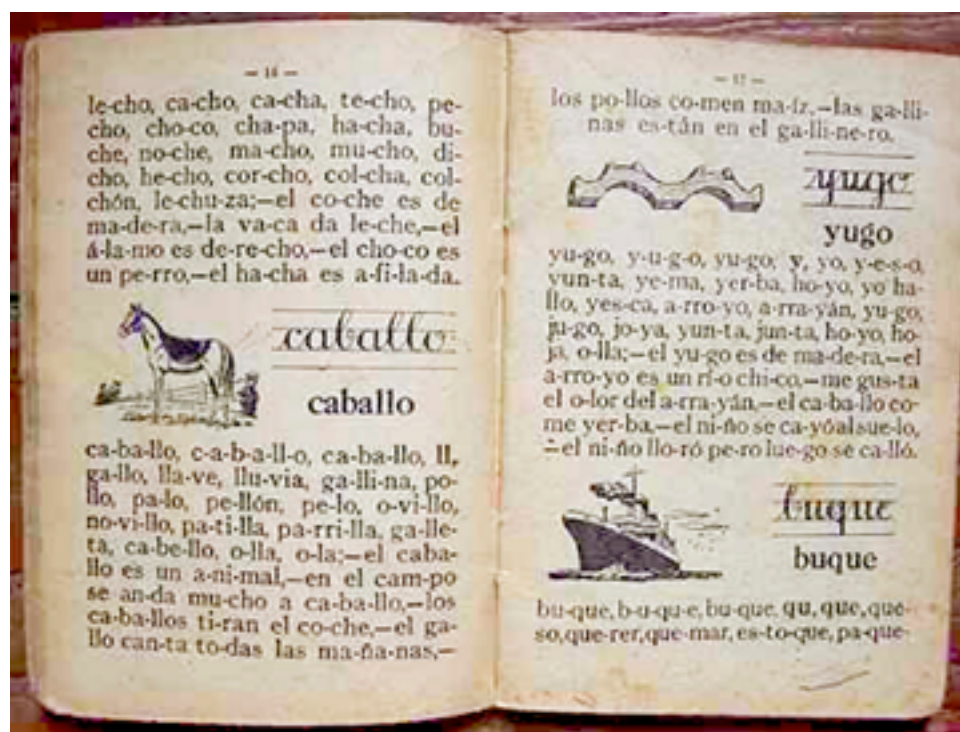 — 16 —
le-cho, ca-cho, ca-cha, te-cho, pe-
cho, cho-co, cha-pa, ha-cha, bu-
che, no-che, ma-cho, mu-cho, di-
cho, he-cho, cor-cho, col-cha, col-
chón, le-chu-za;—el co-che es de
ma-de-ra,—la va-ca da le-che,—el
á-la-mo es de-re-cho,—el cho-co es
un pe-rro,—el ha-cha es a-fi-la-da.
caballo
caballo
ca-ba-llo, c-a-b-a-ll-o, ca-ba-llo, ll,
ga-llo, lla-ve, llu-via, ga-lli-na, po-
llo, pa-lo, pe-llón, pe-lo, o-vi-llo,
no-vi-llo, pa-ti-lla, pa-rri-lla, ga-lle-
ta, ca-be-llo, o-lla, o-la;—el caba-
llo es un a-ni-mal,—en el cam-po
se an-da mu-cho a ca-ba-llo,—los
ca-ba-llos ti-ran el co-che,—el ga-
llo can-ta to-das las ma-ña-nas,—
— 17 —
los po-llos co-men ma-íz,—las ga-lli-
nas es-tán en el ga-lli-ne-ro.
yugo
yugo
yu-go, y-u-g-o, yu-go, y, yo, y-e-s-o,
yun-ta, ye-ma, yer-ba, ho-yo, yo ha-
llo, yes-ca, a-rro-yo, a-rra-yán, yu-go,
ju-go, jo-ya, yun-ta, jun-ta, ho-yo, ho-
ja, o-lla;—el yu-go es de ma-de-ra,—el
a-rro-yo es un rí-o chi-co,—me gus-ta
el o-lor del a-rra-yán,—el ca-ba-llo co-
me yer-ba,—el ni-ño se ca-yó al sue-lo,
—el ni-ño llo-ró pe-ro lue-go se ca-lló.
buque
buque
bu-que, b-u-qu-e, bu-que, qu, que, que-
so, que-rer, que-mar, es-to-que, pa-que-